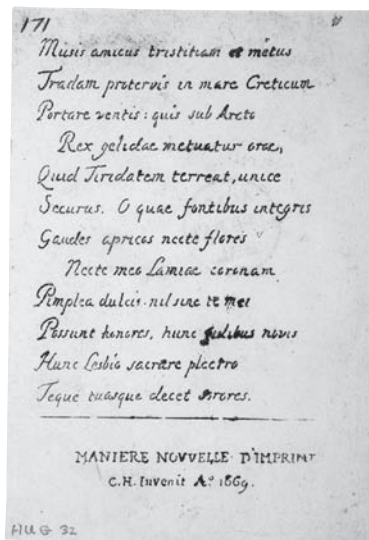 171
Musis amicus tristitiam et metus
Tradam protervis in mare Creticum
Portare ventis: quis sub Arcto
Rex gelidae metuatur orae,
Quid Tiridatem terreat, unice
Securus. O quae fontibus integris
Gaudes apricos necte flores
Necte meo Lamiae coronam
Pimplea dulcis. nil sine te mei
Possunt honores, hunc fidibus novis
Hunc Lesbio sacrare plectro
Teque tuasque decet sorores.
MANIERE NOVVELLE D'IMPRIM
C.H. Invenit A.º 1669.
HUG 32